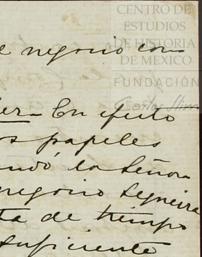 CENTRO DE
ESTUDIOS
DE HISTORIA
DE MÉXICO
FUNDACIÓN
Carlos Slim
negocio en
En efecto
os papeles
la Señora
negocio
ta de tiempo
suficiente